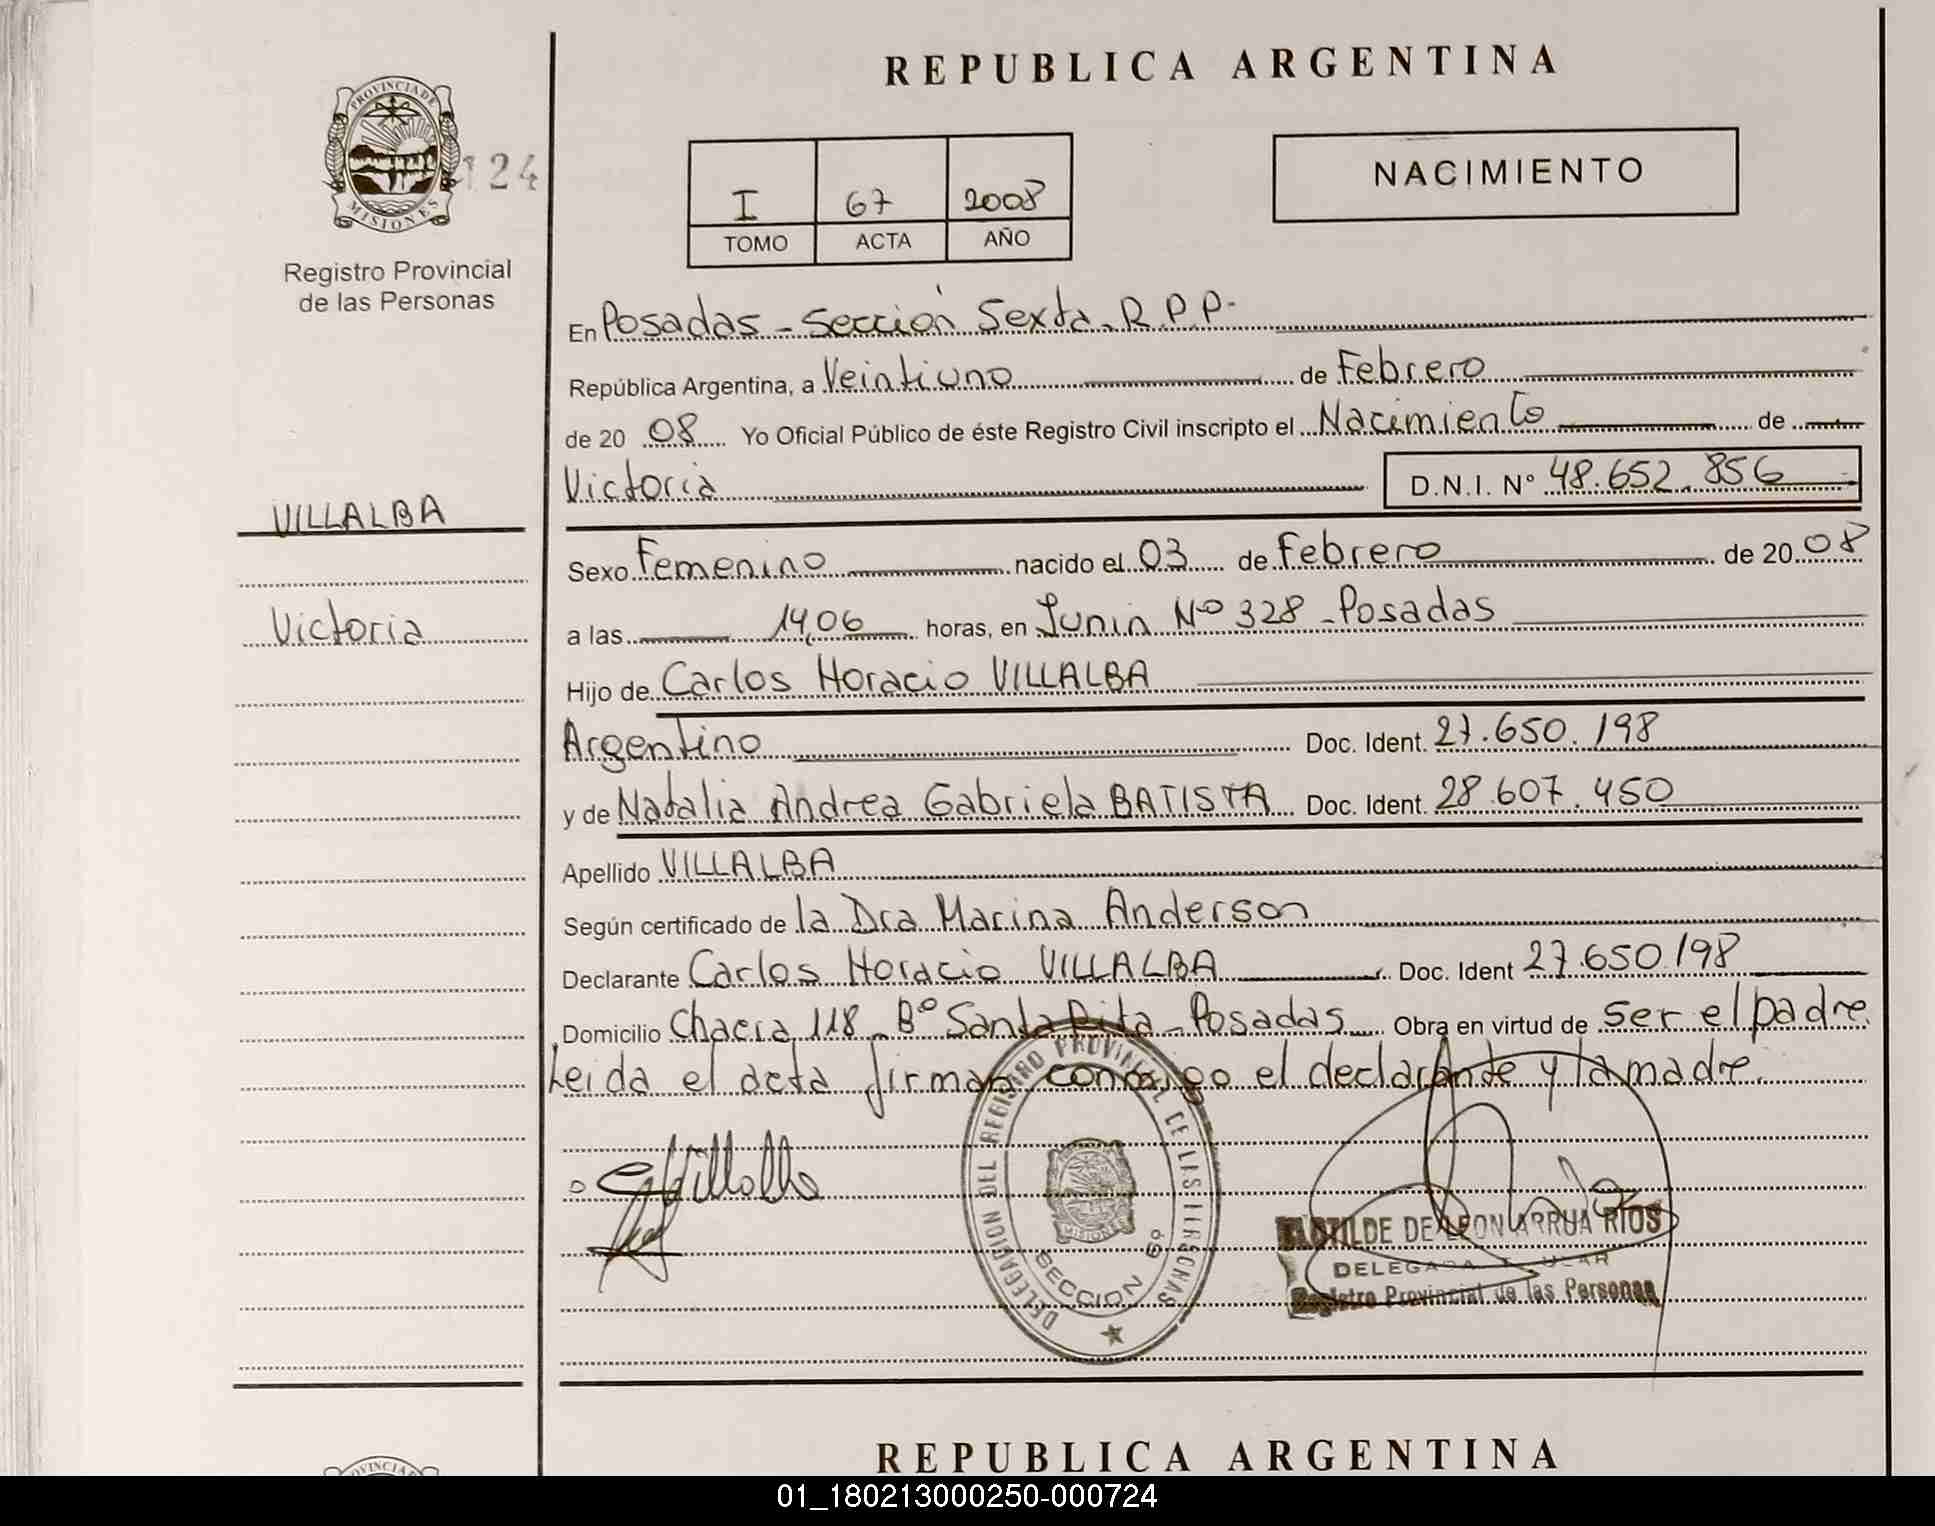 REPUBLICA ARGENTINA
PROVINCIA DE
MISIONES
124
Registro Provincial
de las Personas
I 67 2008
TOMO ACTA AÑO
NACIMIENTO
En Posadas - Sección Sexta - R.P.P.
República Argentina, a Veintiuno de Febrero
de 20 08 Yo Oficial Público de éste Registro Civil inscripto el Nacimiento de
Victoria D.N.I. N° 48.652.856
VILLALBA
Victoria
Sexo Femenino nacido el 03 de Febrero de 20 08
a las 14,06 horas, en Junin Nº 328 - Posadas
Hijo de Carlos Horacio VILLALBA
Argentino Doc. Ident. 27.650.198
y de Natalia Andrea Gabriela BATISTA Doc. Ident. 28.607.450
Apellido VILLALBA
Según certificado de la Dra Marina Anderson
Declarante Carlos Horacio VILLALBA Doc. Ident 27.650.198
Domicilio Chacra 118 - Bº Santa Rita - Posadas Obra en virtud de ser el padre
Leida el acta firman conmigo el declarante y la madre.
DELEGACION DEL REGISTRO PROVINCIAL DE LAS PERSONAS
MISIONES
SECCION 6º
DE LEON ARRUA RIOS
Registro Provincial de las Personas
REPUBLICA ARGENTINA
01_180213000250-000724